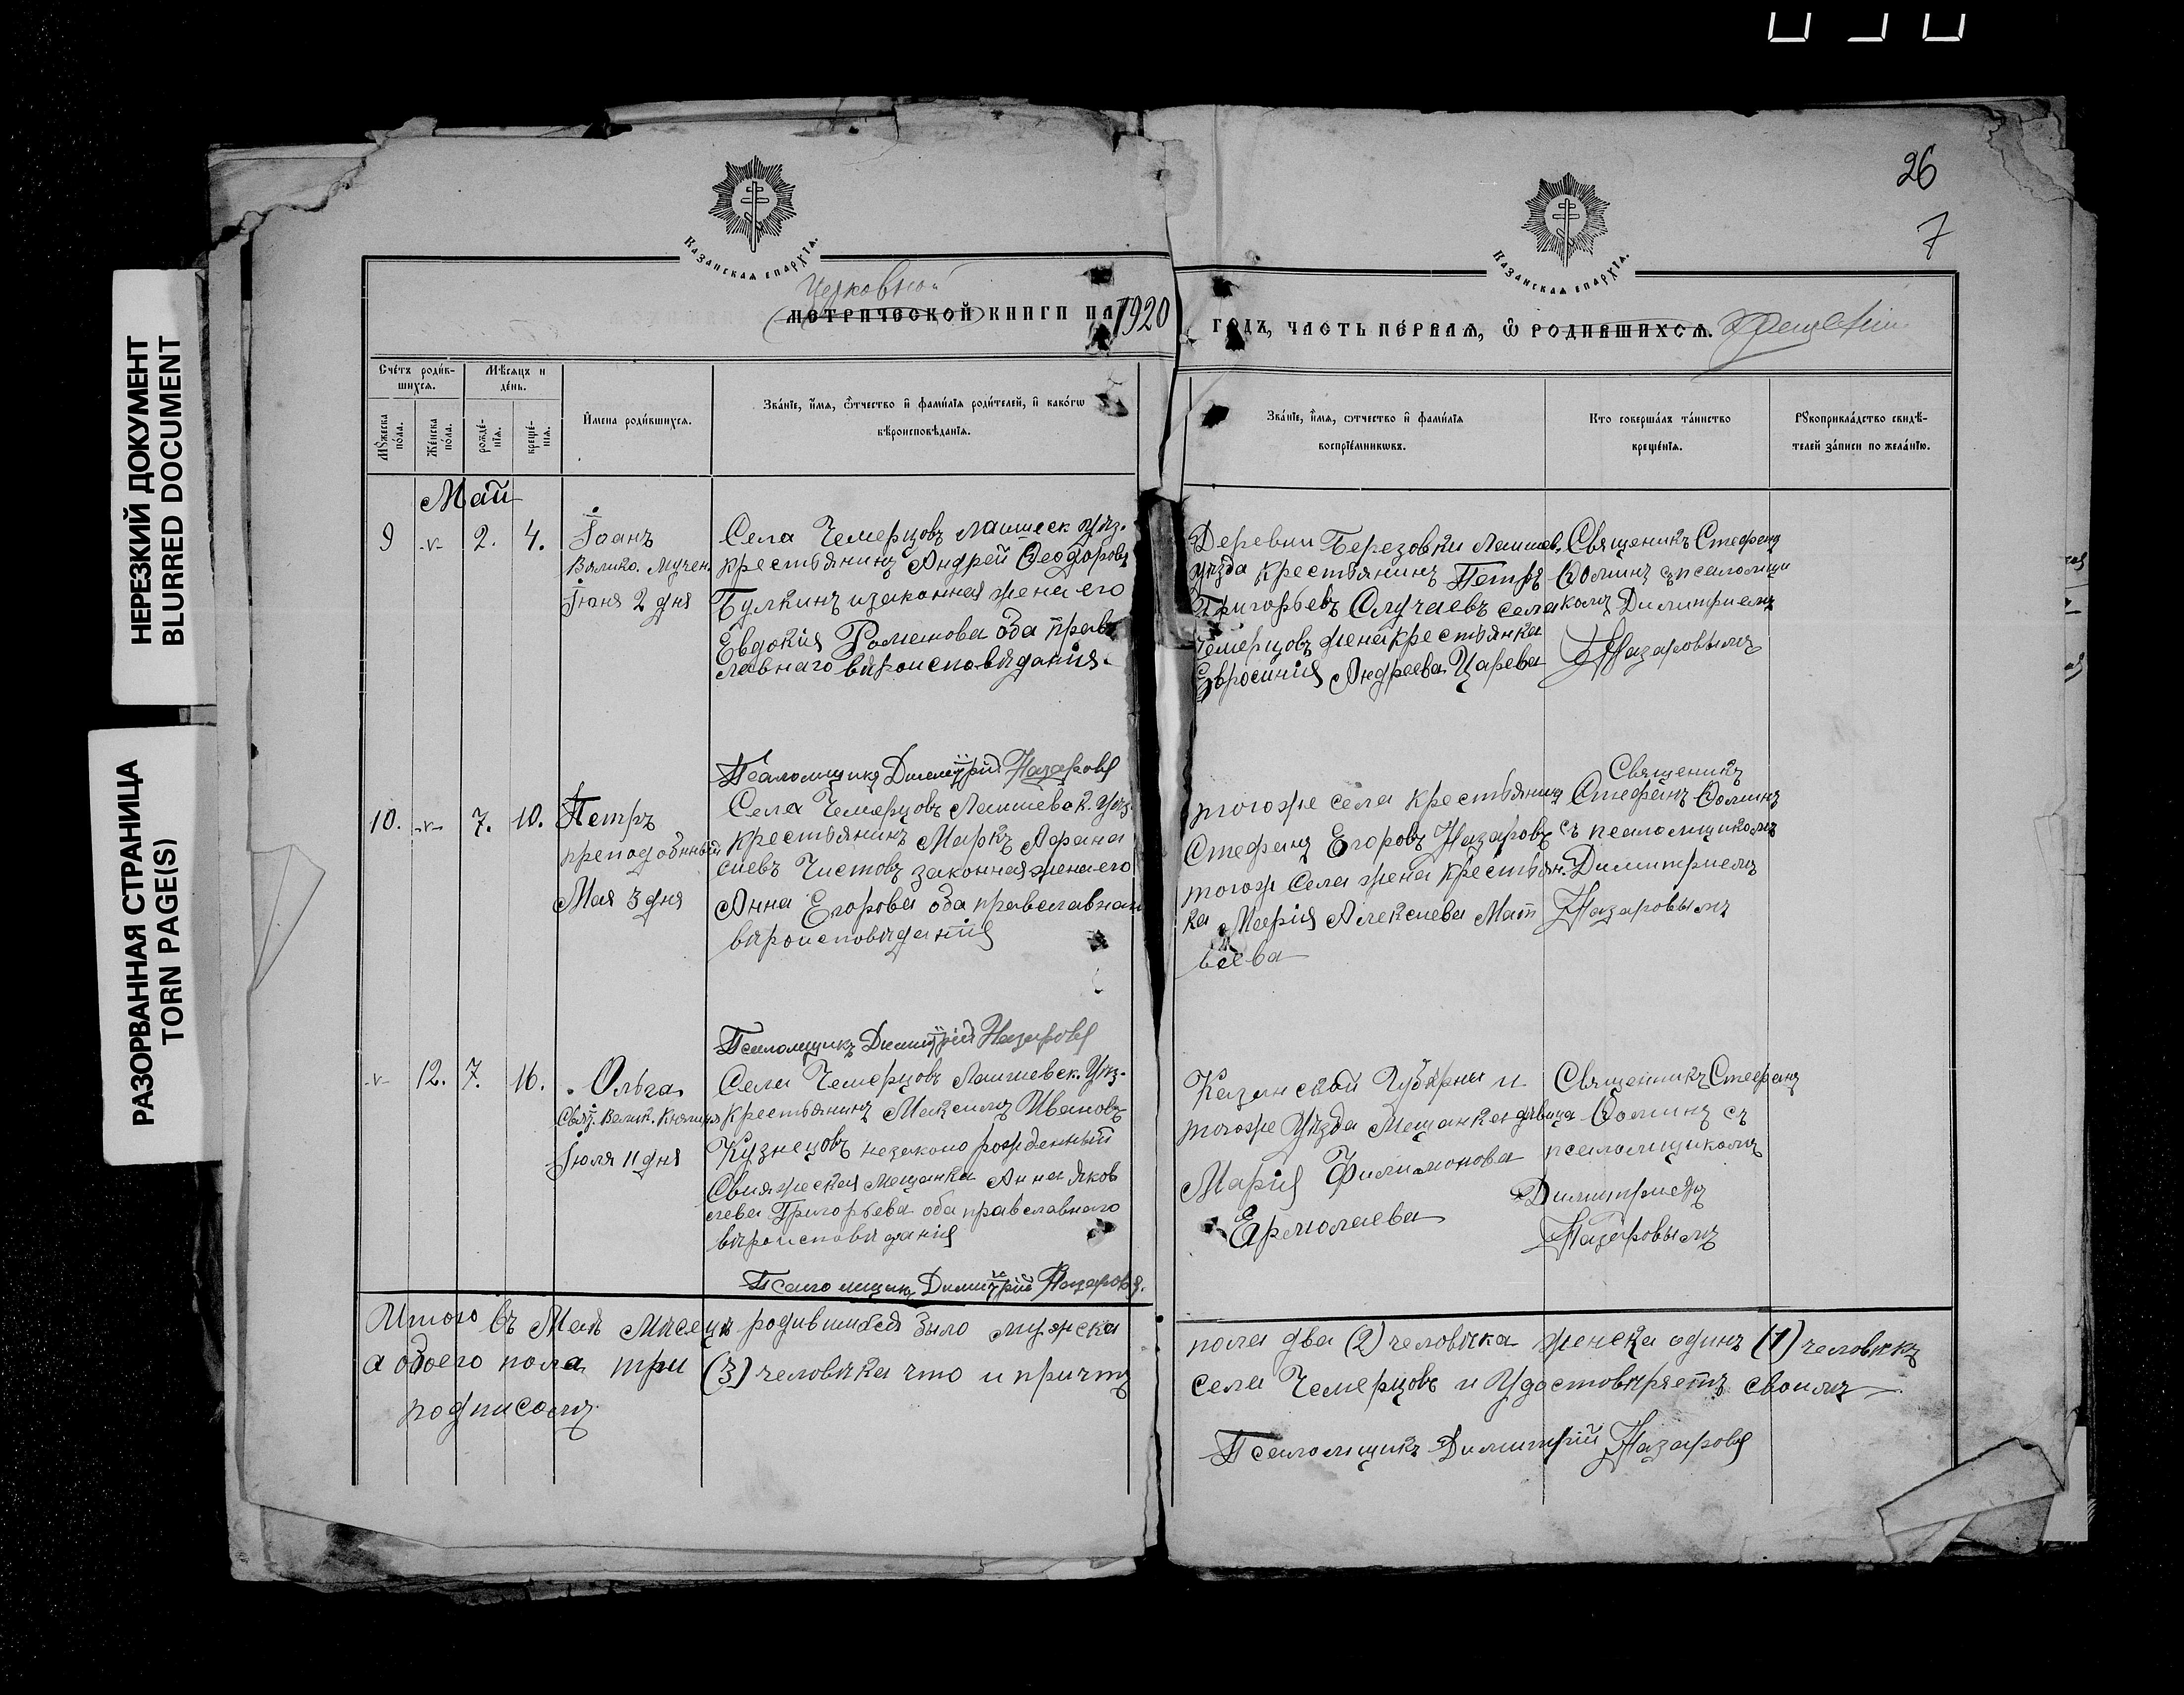 26
7
НЕРЕЗКИЙ ДОКУМЕНТ
BLURRED DOCUMENT
РАЗОРВАННАЯ СТРАНИЦА
TORN PAGE(S)
Казанская епархїа.
Казанская епархїа.
Церковной
метрической книги на 1920
годъ, часть первая, ѿ родившихся.
Счётъ роди́в-
шихся.
Мѣсяцъ и
де́нь.
Му́жеска по́ла.
Же́нска по́ла.
рожде́-
нїя.
креще́-
нїя.
И́мена роди́вшихся.
Зва́нїе, и́мя, ѻ́тчество и҆ фами́лїя роди́телей, и҆ како́гѡ
вѣроисповѣ́данїя.
Зва́нїе, и́мя, ѻ́тчество и҆ фами́лїя
воспрїе́мникѡвъ.
Кто соверша́лъ та́инство
креще́нїя.
Рꙋкоприкла́дство свидѣ́-
телей за́писи по жела́нїю.
Май
9 -v- 2. 4.
Іоанъ
Велико. Мучен.
Іюня 2 дня
Села Чемерцовъ Лаишеск. Уѣз.
крестьянинъ Андрей Ѳеодоровъ
Булкинъ изаконная жена его
Евдокія Романова оба прав
лавнаго вѣроисповѣданія.
Деревни Березовки Лаишев.
уѣзда крестьянинъ Петръ
Григорьевъ Случаевъ села
Чемерцовъ жена крестьянка
Евросинія Андреева Царева
Священикъ Стефанъ
Ѳоминъ съ псаломщи
комъ Димитриемъ
Назаровымъ
Псаломщикъ Димитрій Назаровъ
10. -v- 7. 10.
Петръ
преподобный
Мая 3 дня
Села Чемерцовъ Лаишевск. Уѣз.
крестьянинъ Маркъ Афана
сиевъ Чистовъ законная жена его
Анна Егорова оба православнаго
вѣроисповѣданія
тогоже села крестьянинъ
Стефанъ Егоровъ Назаровъ
тогож села жена крестьян.
ка Марія Алексиева Мат
веева
Священикъ
Стефанъ Ѳоминъ
съ псаломщикомъ
Димитриемъ
Назаровымъ
Псаломщикъ Димитрій Назаровъ
-v- 12. 7. 16.
Ольга
Свят. Велик. Княгиня
Іюля 11 дня
Села Чемерцовъ Лаишевск. Уѣз.
крестьянинъ Максимъ Ивановъ
Кузнецовъ незаконо рожденный
Свияжеская Мещанка Анна Яков
лева Григорьева оба православнаго
вѣроисповѣданія
Казанской Губерны и
тогоже Уѣзда Мещанка дѣвица
Марія Филимонова
Ермолаева
Священникъ Стефанъ
Ѳоминъ съ
псаломщикомъ
Димитриемъ
Назаровымъ
Псаломщикъ Димитрій Назаровъ.
Итого въ Маѣ мѣсяцѣ родившихся было мужска
пола два (2) человѣка женска одинъ (1) человѣкъ
а обоего пола три (3) человѣка что и причтъ
села Чемерцовъ и Удостовѣряетъ своимъ
подписомъ
Псаломщикъ Димитрій Назаровъ